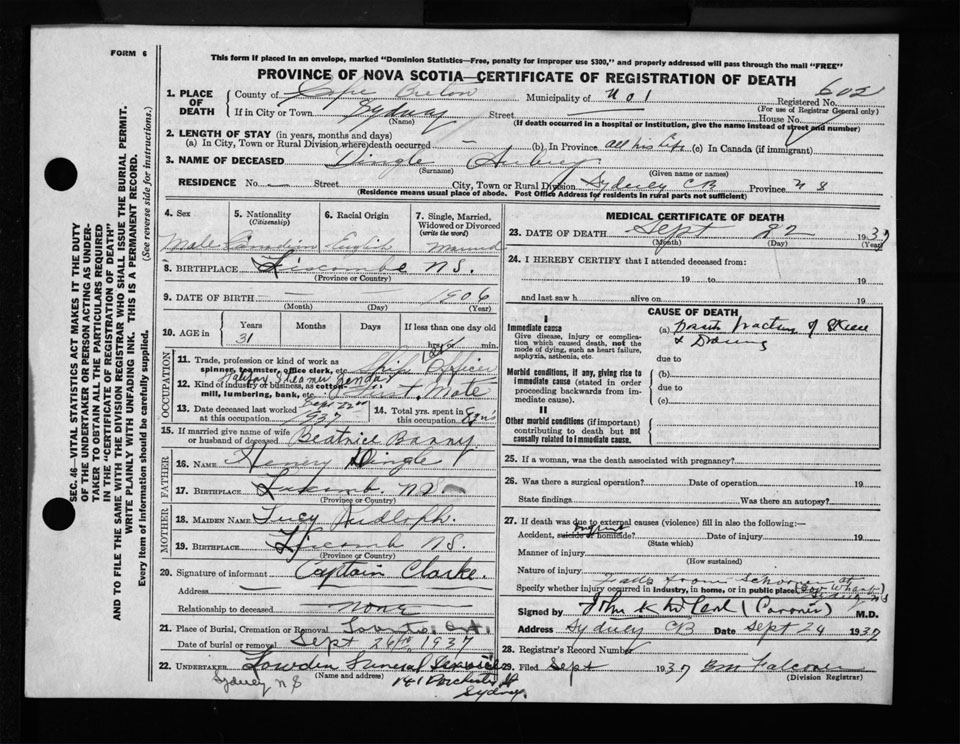 FORM 6
This form if placed in an envelope, marked "Dominion Statistics—Free, penalty for improper use $300," and properly addressed will pass through the mail "FREE"
PROVINCE OF NOVA SCOTIA—CERTIFICATE OF REGISTRATION OF DEATH
1. PLACE OF DEATH
County of Cape Breton Municipality of No 1 Registered No. 602
(For use of Registrar General only)
If in City or Town Sydney Street — House No.
(Name) (If death occurred in a hospital or institution, give the name instead of street and number)
2. LENGTH OF STAY (in years, months and days)
(a) In City, Town or Rural Division where death occurred — (b) In Province All his life (c) In Canada (if immigrant)
3. NAME OF DECEASED Dingle Aubrey
(Surname) (Given name or names)
RESIDENCE No. — Street City, Town or Rural Division Sydney CB Province N S
(Residence means usual place of abode. Post Office Address for residents in rural parts not sufficient)
4. Sex 5. Nationality (Citizenship) 6. Racial Origin 7. Single, Married, Widowed or Divorced (write the word)
Male Canadian English Married
8. BIRTHPLACE Liscombe NS.
(Province or Country)
9. DATE OF BIRTH — 1906
(Month) (Day) (Year)
10. AGE in Years Months Days If less than one day
31 hrs. or min.
OCCUPATION
11. Trade, profession or kind of work as spinner, teamster, office clerk, etc. Ship Officer
12. Kind of industry or business, as cotton mill, lumbering, bank, etc. Steamer 1st Mate
13. Date deceased last worked at this occupation Sept 22nd 1937
14. Total yrs. spent in this occupation
15. If married give name of wife or husband of deceased Beatrice Banny
FATHER
16. NAME Henry Dingle
17. BIRTHPLACE Liscomb NS
(Province or Country)
MOTHER
18. MAIDEN NAME Lucy Rudloph.
19. BIRTHPLACE Liscomb NS.
(Province or Country)
20. Signature of informant Captain Clarke.
Address
Relationship to deceased none
21. Place of Burial, Cremation or Removal
Date of burial or removal Sept 26th 1937
22. UNDERTAKER Lowden Funeral Service
(Name and address)
Sydney N S 141 Dorchester St
Sydney.
MEDICAL CERTIFICATE OF DEATH
23. DATE OF DEATH Sept 22 1937
(Month) (Day) (Year)
24. I HEREBY CERTIFY that I attended deceased from:
19 to 19
and last saw h alive on 19
CAUSE OF DEATH
I
Immediate cause
Give disease, injury or complication which caused death, not the mode of dying, such as heart failure, asphyxia, asthenia, etc.
(a) fracture of Skull
& Drowning
due to
Morbid conditions, if any, giving rise to immediate cause (stated in order proceeding backwards from immediate cause).
(b)
due to
(c)
II
Other morbid conditions (if important) contributing to death but not causally related to immediate cause.
25. If a woman, was the death associated with pregnancy?
26. Was there a surgical operation? Date of operation 19
State findings Was there an autopsy?
27. If death was due to external causes (violence) fill in also the following:—
Accident, suicide or homicide? Date of injury 19
(State which)
Manner of injury
(How sustained)
Nature of injury
Falls from Schooner at
Specify whether injury occurred in industry, in home, or in public place
Signed by (Coroner) M.D.
Address Sydney CB Date Sept 24 1937
28. Registrar's Record Number
29. Filed Sept 1937 Falconer
(Division Registrar)
SEC. 46—VITAL STATISTICS ACT MAKES IT THE DUTY
OF THE UNDERTAKER OR PERSON ACTING AS UNDER-
TAKER TO OBTAIN ALL THE PARTICULARS REQUIRED
IN THE "CERTIFICATE OF REGISTRATION OF DEATH"
AND TO FILE THE SAME WITH THE DIVISION REGISTRAR WHO SHALL ISSUE THE BURIAL PERMIT.
WRITE PLAINLY WITH UNFADING INK. THIS IS A PERMANENT RECORD.
Every item of information should be carefully supplied. (See reverse side for instructions.)